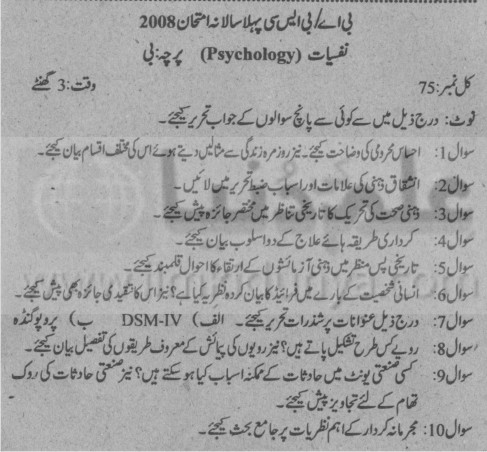 بی اے/بی ایس سی پہلا سالانہ امتحان 2008
نفسیات (Psychology) پرچہ: بی
کل نمبر: 75 وقت: 3 گھنٹے
نوٹ: درج ذیل میں سے کوئی سے پانچ سوالوں کے جواب تحریر کیجئے۔
سوال 1: احساس محرومی کی وضاحت کیجئے۔ نیز روزمرہ زندگی سے مثالیں دیتے ہوئے اس کی مختلف اقسام بیان کیجئے۔
سوال 2: انشقاق ذہنی کی علامات اور اسباب ضبط تحریر میں لائیں۔
سوال 3: ذہنی صحت کی تحریک کا تاریخی تناظر میں مختصر جائزہ پیش کیجئے۔
سوال 4: کرداری طریقہ ہائے علاج کے دو اسلوب بیان کیجئے۔
سوال 5: تاریخی پس منظر میں ذہنی آزمائشوں کے ارتقاء کا احوال قلمبند کیجئے۔
سوال 6: انسانی شخصیت کے بارے میں فرائیڈ کا بیان کردہ نظریہ کیا ہے؟ نیز اس کا تنقیدی جائزہ بھی پیش کیجئے۔
سوال 7: درج ذیل عنوانات پر شذرات تحریر کیجئے۔ الف) DSM-IV ب) پروپوگنڈہ
سوال 8: رویے کس طرح تشکیل پاتے ہیں؟ نیز رویوں کی پیمائش کے معروف طریقوں کی تفصیل بیان کیجئے۔
سوال 9: کسی صنعتی یونٹ میں حادثات کے ممکنہ اسباب کیا ہو سکتے ہیں؟ نیز صنعتی حادثات کی روک
تھام کے لئے تجاویز پیش کیجئے۔
سوال 10: مجرمانہ کردار کے اہم نظریات پر جامع بحث کیجئے۔